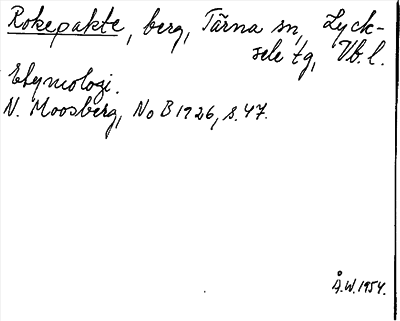 Rokepakte, berg, Tärna sn, Lyck-
sele tg, Vb. l.
Etymologi.
N. Moosberg, NoB 1926, s. 47.
Å.W. 1954.